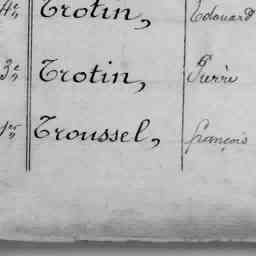 4e,, Trotin, Edouard
3e,, Trotin, Pierre
1er,, Troussel, françois